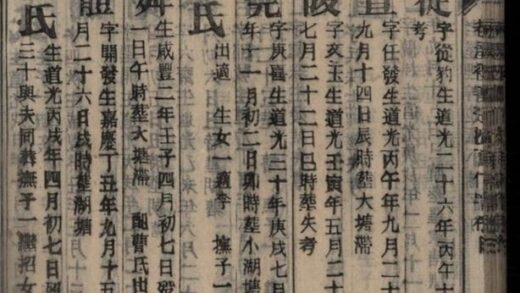 從
考
字從豹生道光二十六年丙午十
字任發生道光丙午年九月二
九月十四日辰時葬大塘滯
陵
字亥玉生道光壬寅年五月二十
七月二十二日巳時葬失考
堯
字庚喜生道光三十年庚戌七月
年十一月初二日卯時葬小湖塘
氏
出適 生女一適李 撫子一
生咸豐二年壬子四月初七日歿
一日午時葬大塘滯 配曹氏出
體
字開發生嘉慶丁丑年九月十五
月二十六日戌時葬湖塘
氏
生道光丙戌年四月初七日歿
三十與夫同葬撫子一 招女